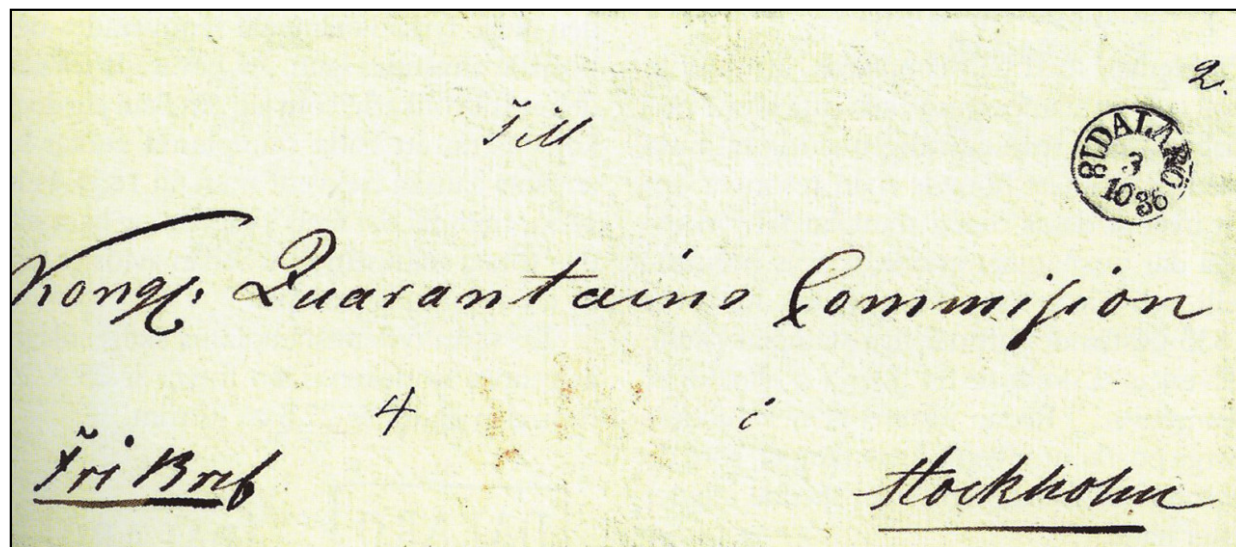 2.
Till
DALARÖ
3
10 36
Kongl: Quarantains Commision
4 i
Fri Bref
Stockholm